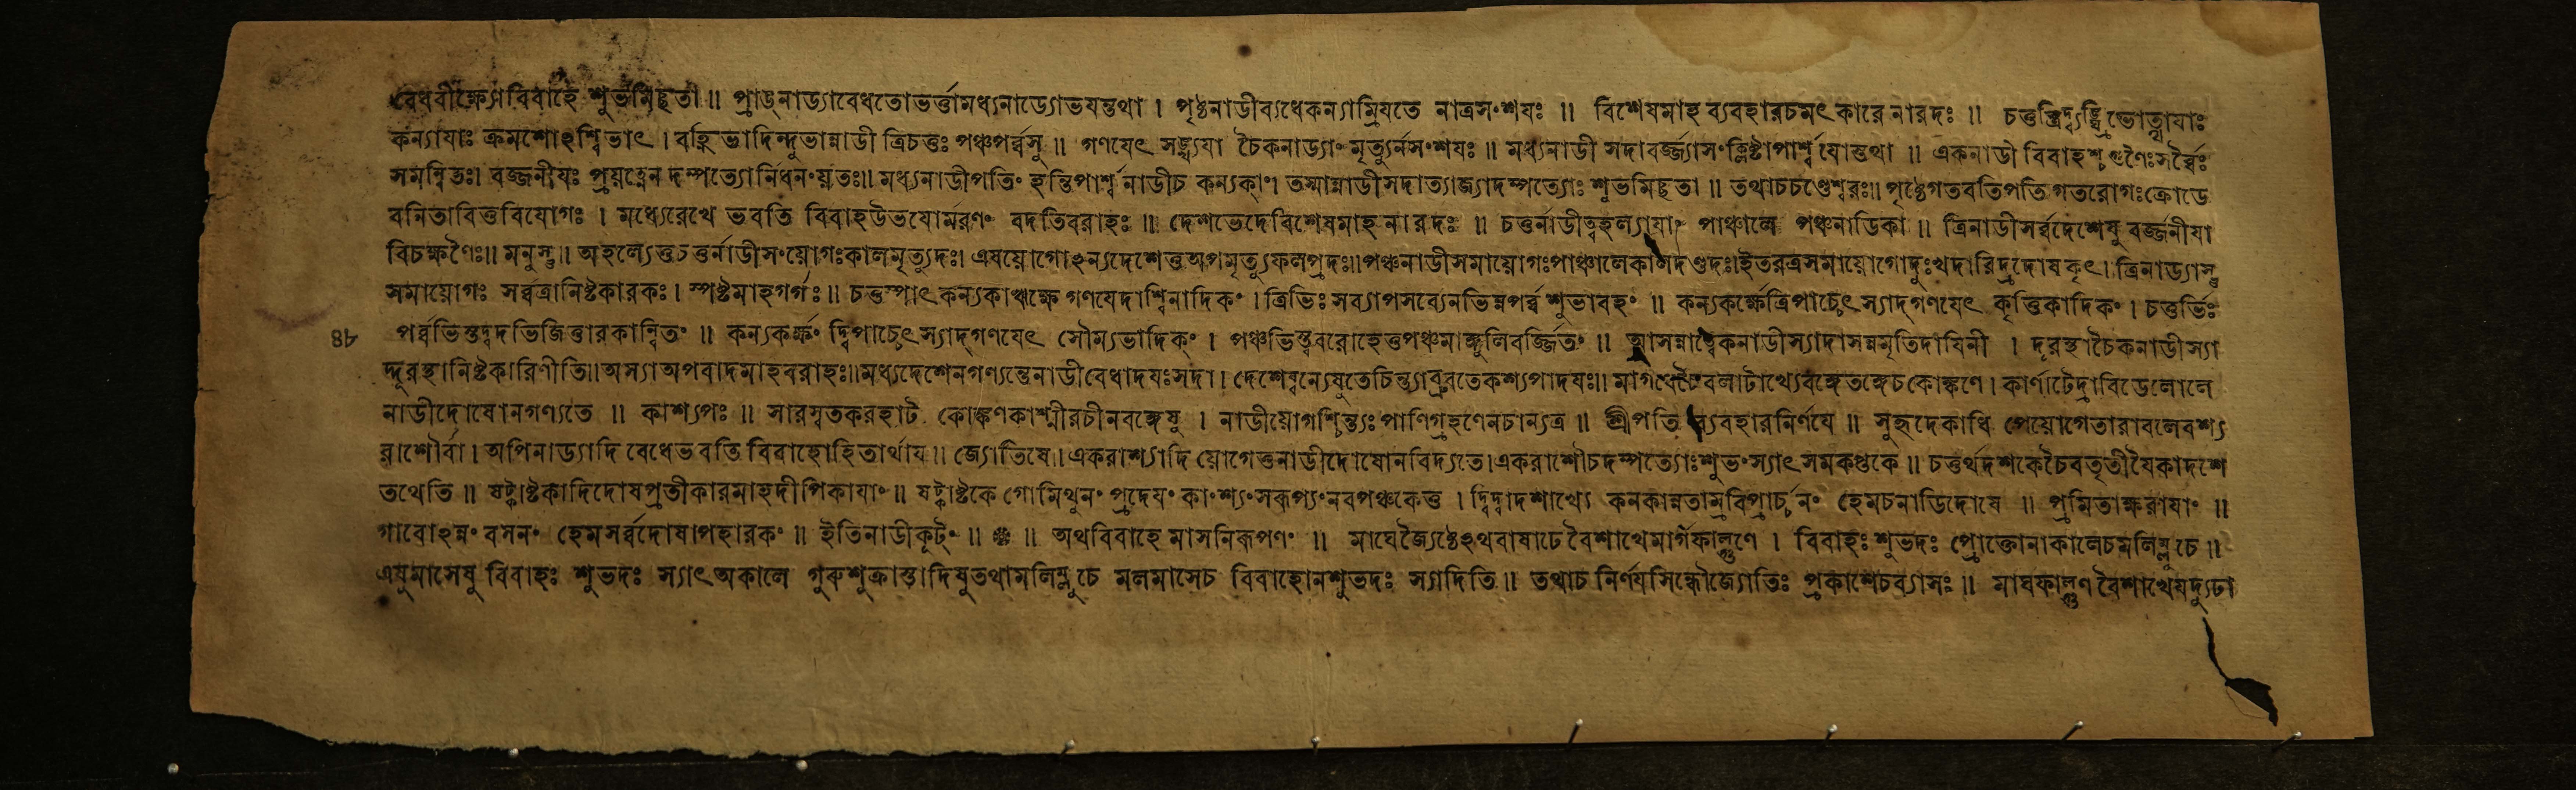 বেধবীক্ষ্যোবিবাহে শুভমিচ্ছতা ॥ প্রাঙনাড্যাবেধতোভর্ত্তামধ্যনাড্যোভযন্তথা । পৃষ্ঠনাডীব্যধেকন্যাম্রিযতে নাত্রসংশযঃ ॥ বিশেষমাহ ব্যবহারচমৎ কারে নারদঃ ॥
কন্যাযাঃ ক্রমশোঽশ্বিভাৎ । বহ্নিভাদিন্দুভান্নাডী ত্রিচতুঃ পঞ্চপর্ব্বসু ॥ গণযেৎ সঙ্খ্যযা চৈকনাড্যাং মৃত্যুর্নসংশযঃ ॥ মধ্যনাডী সদাবর্জ্জ্যাসংক্লিষ্টাপার্শ্বযোস্তথা ॥ একনাডী বিবাহশ্চগুণৈঃসর্ব্বৈঃ
সমন্বিতঃ। বর্জ্জনীযঃ প্রযত্নেন দম্পত্যোর্নিধনংযতঃ॥ মধ্যনাডীপতিং হন্তিপার্শ্বনাডীচ কন্যকাং। তস্মান্নাডীসদাত্যাজ্যাদম্পত্যোঃ শুভমিচ্ছতা ॥ তথাচচণ্ডেশ্বরঃ॥ পৃষ্ঠেগতবতিপতি গতরোগঃক্রোডে
বনিতাবিত্তবিযোগঃ । মধ্যেরেখে ভবতি বিবাহউভযোর্মরণং বদতিবরাহঃ ॥ দেশভেদেবিশেষমাহ নারদঃ ॥ চতুর্নাডীত্বহল্যাযাং পাঞ্চালে পঞ্চনাডিকা ॥ ত্রিনাডীসর্ব্বদেশেষু বর্জ্জনীযা
বিচক্ষণৈঃ॥ মনুস্তু॥ অহল্যেতুচতুর্নাডীসংযোগঃকালমৃত্যুদঃ। এষযোগোঽন্যদেশেতুঅপমৃত্যুফলপ্রদঃ॥ পঞ্চনাডীসমাযোগঃপাঞ্চালেকালদণ্ডদঃ।ইতরত্রসমাযোগোদুঃখদারিদ্রদোষকৃৎ। ত্রিনাড্যাস্তু
সমাযোগঃ সর্ব্বত্রানিষ্টকারকঃ । স্পষ্টমাহগর্গঃ ॥ চতুস্পাৎ কন্যকাঋক্ষে গণযেদাশ্বিনাদিকং । ত্রিভিঃ সব্যাপসব্যেনভিন্নপর্ব্ব শুভাবহং ॥ কন্যকর্ক্ষেত্রিপাচ্চেৎ স্যাদ্গণযেৎ কৃত্তিকাদিকং । চতুর্ভিঃ
৪৮ পর্ব্বভিস্তদ্বদভিজিত্তারকান্বিতং ॥ কন্যকর্ক্ষং দ্বিপাচ্চেৎ স্যাদ্গণযেৎ সৌম্যভাদিকং । পঞ্চভিস্ত্ববরোহেতুপঞ্চমাঙ্গুলিবর্জ্জিতং ॥ আসন্নাত্বেকনাডীস্যাদাসন্নমৃতিদাযিনী । দূরস্থাচৈকনাডীস্যা
দ্দূরস্থানিষ্টকারিণীতি॥ অস্যাঅপবাদমাহবরাহঃ॥ মধ্যদেশেনগণ্যন্তেনাডীবেধাদযঃসদা। দেশেষ্বন্যেষুতেচিন্ত্যাব্রুবতেকশ্যপাদযঃ॥ মাগধেচৈবলাটাখ্যেবঙ্গেতঙ্গেচকোঙ্কণে। কার্ণাটেদ্রাবিডেলোলে
নাডীদোষোনগণ্যতে ॥ কাশ্যপঃ ॥ সারস্বতকরহাট কোঙ্কণকাশ্মীরচীনবঙ্গেষু । নাডীযোগশ্চিন্ত্যঃ পাণিগ্রহণেনচান্যত্র ॥ শ্রীপতি ব্যবহারনির্ণযে ॥ সুহৃদেকাধি পেযোগেতারাবলেবশ্য
রাশৌর্বা। অপিনাড্যাদি বেধেভবতি বিবাহোহিতার্থায ॥ জ্যোতিষে॥ একরাশ্যাদি যোগেতুনাডীদোষোনবিদ্যতে।একরাশৌচদম্পত্যোঃশুভংস্যাৎ সমকণ্ডকে ॥ চতুর্থদশকেচৈবতৃতীযৈকাদশে
তথেতি ॥ ষট্কাষ্টকাদিদোষপ্রতীকারমাহদীপিকাযাং ॥ ষট্কাষ্টকে গোমিথুনং প্রদেযং কাংশ্যংসরূপ্যংনবপঞ্চকেতু । দ্বির্দ্বাদশাখ্যে কনকান্নতাম্রবিপ্রার্চ্চনং হেমচনাডিদোষে ॥ প্রমিতাক্ষরাযাং ॥
গাবোঽন্নং বসনং হেমসর্ব্বদোষাপহারকং ॥ ইতিনাডীকূটং ॥ ॥ অথবিবাহে মাসনিরূপণং ॥ মাঘেজ্যৈষ্ঠেঽথবাষাঢে বৈশাখেমার্গফাল্গুণে । বিবাহঃ শুভদঃ প্রোক্তোনাকালেচমলিম্লুচে ॥
এষুমাসেষু বিবাহঃ শুভদঃ স্যাৎ অকালে গুরুশুক্রাস্তাদিষুতথামলিম্লুচে মলমাসেচ বিবাহোনশুভদঃ স্যাদিতি ॥ তথাচ নির্ণযসিন্ধৌজ্যোতিঃ প্রকাশেচব্যাসঃ ॥ মাঘফাল্গুণ বৈশাখেযদ্যূঢা